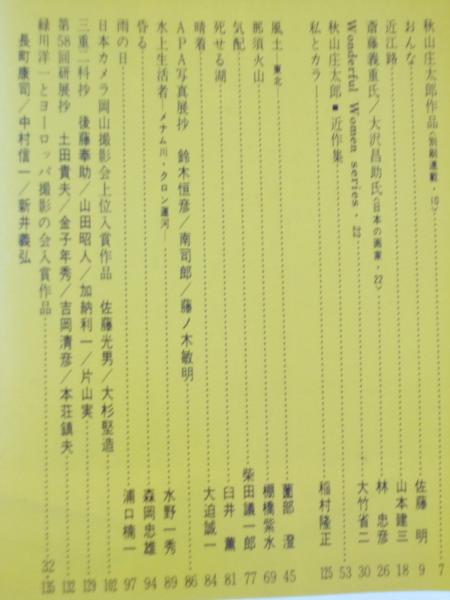 秋山庄太郎作品〈別冊連載・10〉 7
おんな 佐藤 明 9
近江路 山本建三 18
斎藤義重氏／大沢昌助氏〈日本の画家・22〉 林 忠彦 26
Wonderful Women series・22 大竹省二 30
秋山庄太郎■近作集 53
私とカラー 稲村隆正 125
風土 東北 薗部 澄 45
那須火山 棚橋紫水 69
気配 柴田議一郎 77
死せる湖 臼井 薫 81
晴着 大迫誠一 84
APA写真展抄 鈴木恒彦／南司郎／藤ノ木敏明 86
水上生活者―メナム川・クロン運河― 水野一秀 89
昏る 森岡忠雄 94
雨の日 浦口楠一 97
日本カメラ岡山撮影会上位入賞作品 佐藤光男／大杉堅造 102
三重二科抄 後藤奉助／山田昭人／加納利一／片山実 129
第58回研展抄 土田貴夫／金子年秀／吉岡清彦／本荘鎮夫 132
緑川洋一とヨーロッパ撮影の会入賞作品 32. 135
長町康司／中村信一／新井義弘